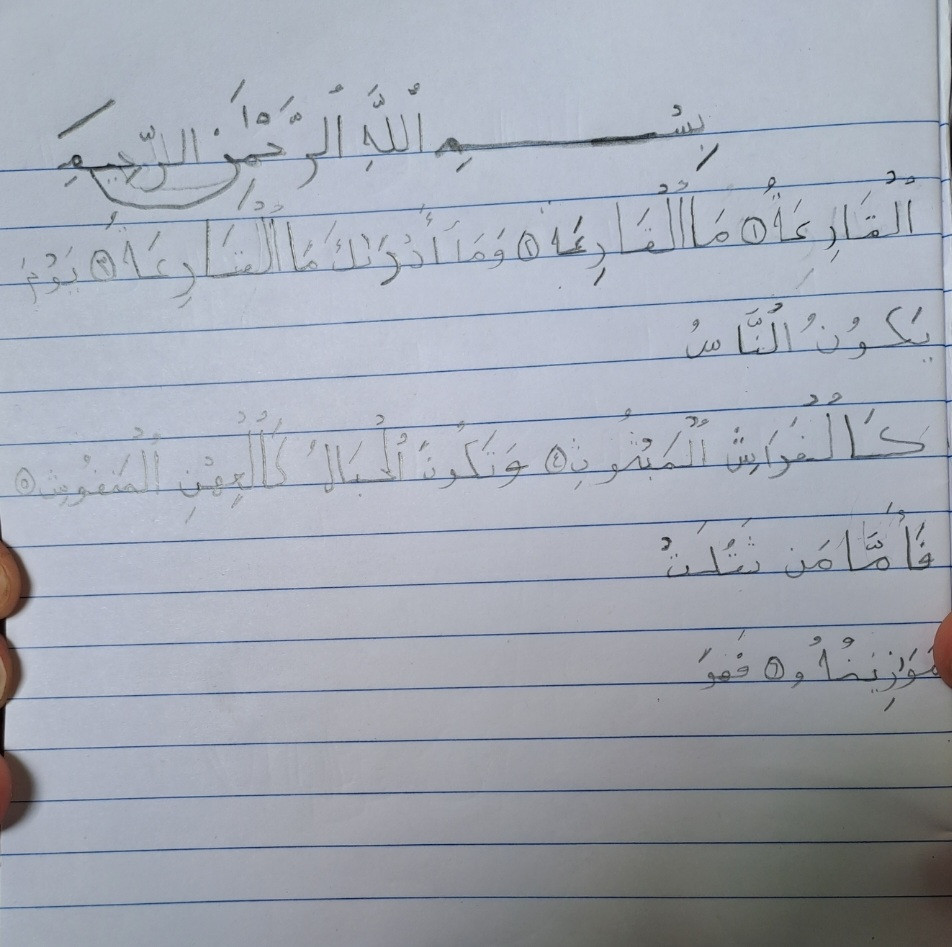 بِسْمِ اللَّهِ الرَّحْمَٰنِ الرَّحِيمِ
الْقَارِعَةُ ١ مَا الْقَارِعَةُ ٢ وَمَا أَدْرَىٰكَ مَا الْقَارِعَةُ ٣ يَوْمَ
يَكُونُ النَّاسُ
كَالْفَرَاشِ الْمَبْثُوثِ ٤ وَتَكُونُ الْجِبَالُ كَالْعِهْنِ الْمَنفُوشِ ٥
فَأَمَّا مَن ثَقُلَتْ
مَوَٰزِينُهُ و ٦ فَهُوَ